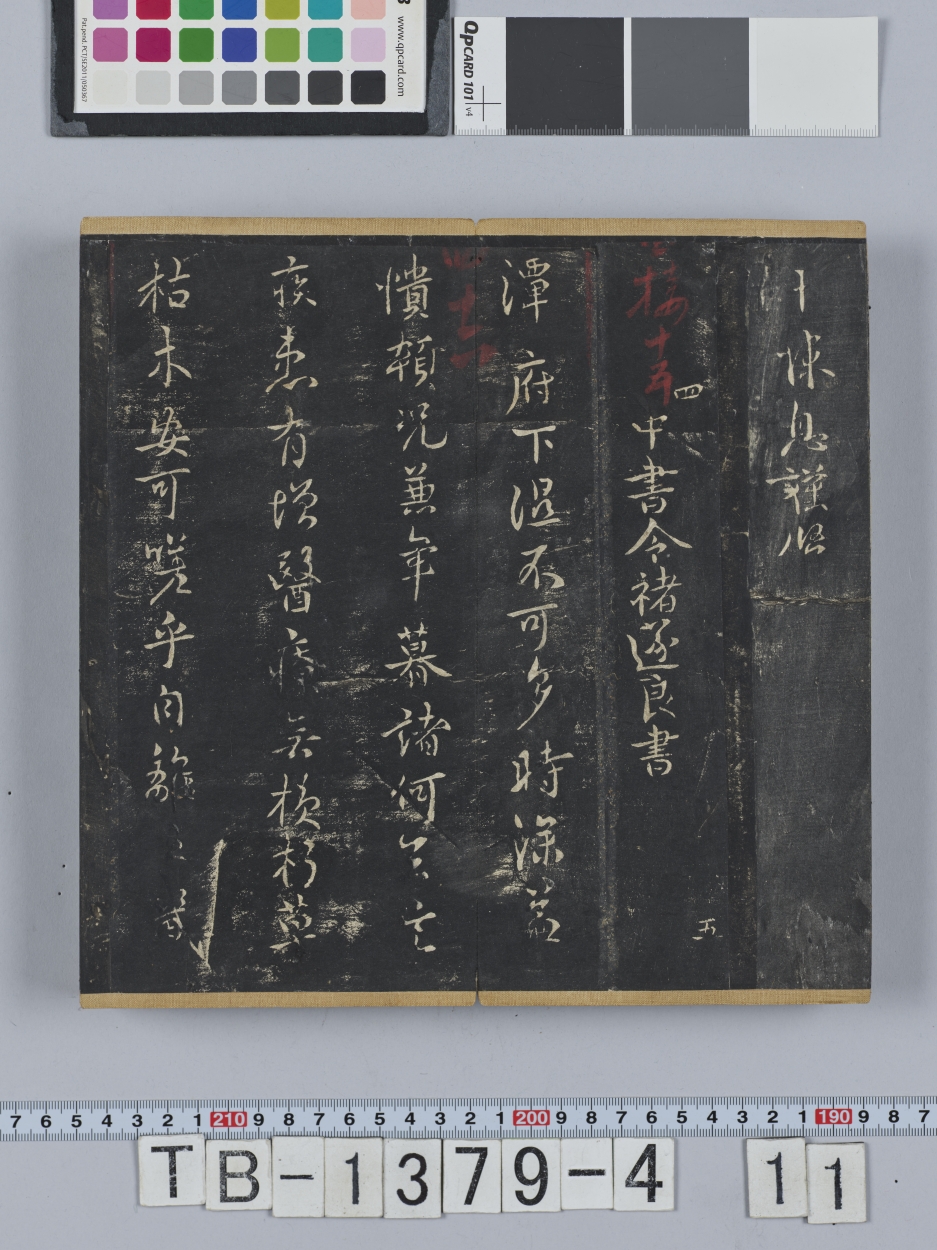 www.qpcard.com
Pat.pend. PCT/SE2011/050367
QPCARD 101 v4
悚息謹啟
接十五
四
中書令褚遂良書
五
潭府下濕不可多時深益
憒顇況兼年暮諸何可言
疾患有增醫療無損朽草
枯木安可嗟乎自離
7 6 5 4 3 2 1 210 9 8 7 6 5 4 3 2 1 200 9 8 7 6 5 4 3 2 1 190 9 8 7
TB-1379-4 11